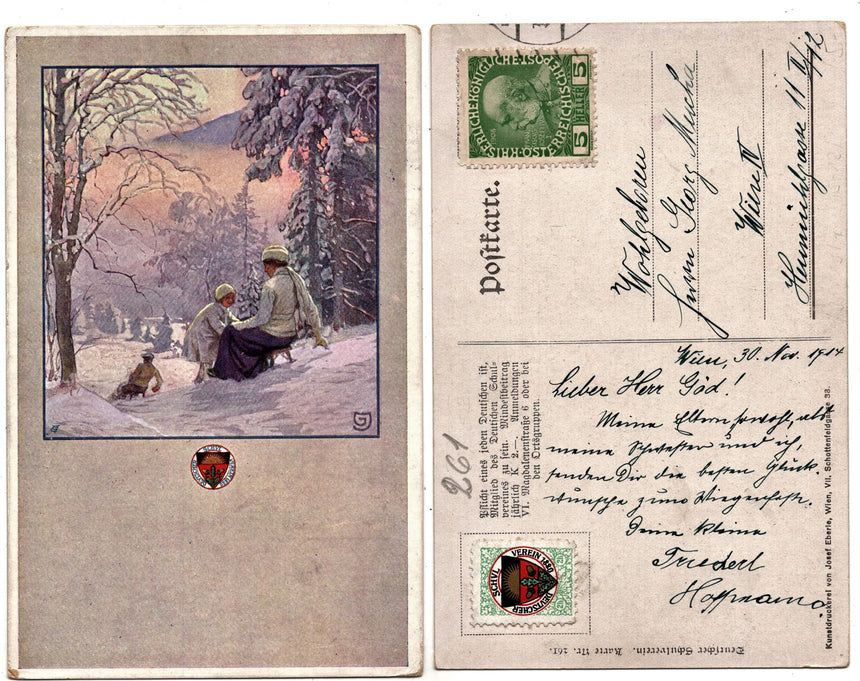 KAISERLICHEKÖNIGLICHE
ÖSTERREICHISCHE
5
5
HELLER
Postkarte.
Wohlgeboren
Herrn Georg
Wien IV
Wien, 30. Nov. 1914
Lieber Herr Göd!
Meine Eltern sowohl, als
meine Schwester und ich,
senden Dir die besten Glück-
wünsche zum Wiegenfeste.
Deine kleine
Friederl
Hoffmann.
Pflicht eines jeden Deutschen ist,
Mitglied des Deutschen Schul-
vereines zu sein. Mindestbeitrag
jährlich K 2.—. Anmeldungen
VI. Magdalenenstraße 6 oder bei
den Ortsgruppen.
261
DEUTSCHER SCHVLVEREIN 1880
Deutscher Schulverein. Karte Nr. 261.
Kunstdruckerei von Josef Eberle, Wien, VII. Schottenfeldgasse 38.